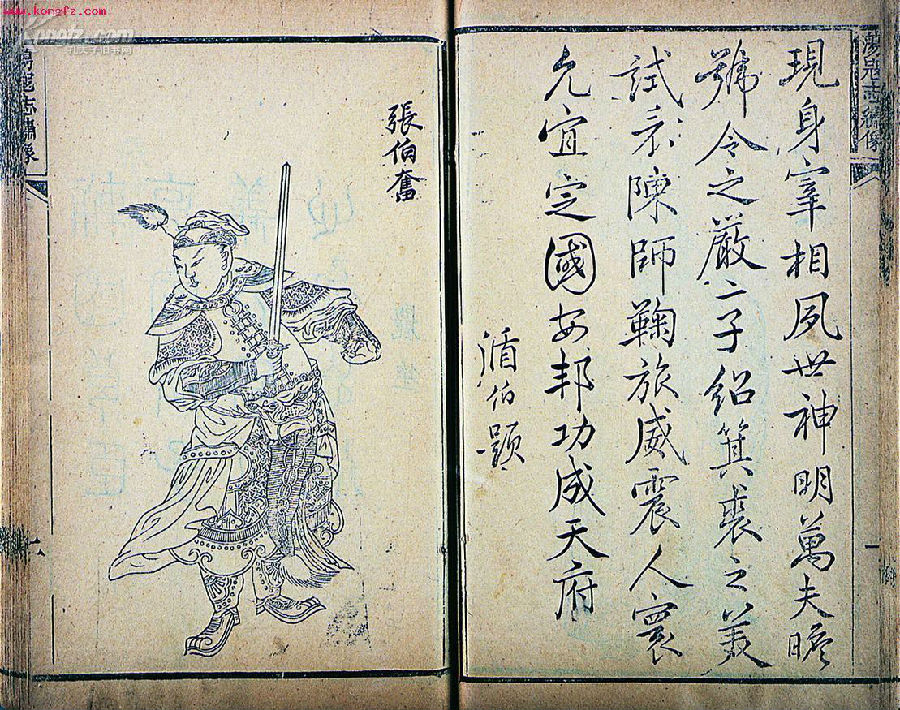 www.kongfz.com
蕩寇志繡像
現身宰相夙世神明萬夫瞻
號令之嚴二子紹箕裘之美
試看陳師鞠旅威震人寰
允宜定國安邦功成天府
循伯題
張伯奮
蕩寇志繡像